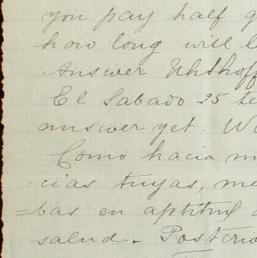 you pay half
how long will
Answer Uhthoff
El Sabado 25 te
answer yet. W
Como hacia m
=cias tuyas, me
=bas en aptitud
salud. Posterio